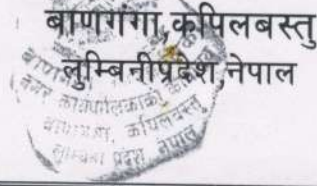 बाणगंगा,कपिलबस्तु
लुम्बिनीप्रदेश,नेपाल
नगर कार्यपालिकाको
बाणगंगा, कपिलवस्तु
लुम्बिनी प्रदेश, नेपाल